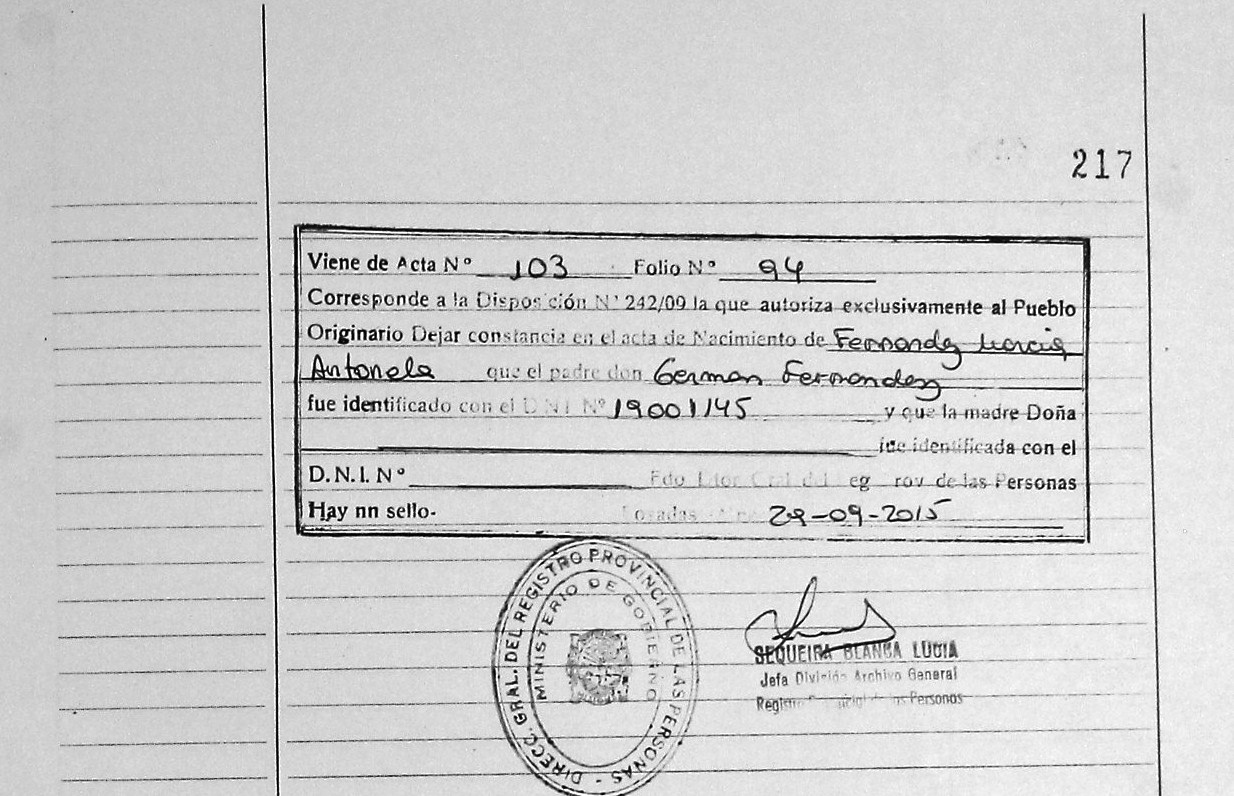 217
Viene de Acta N° 103 Folio N° 94
Corresponde a la Disposición N° 242/09 la que autoriza exclusivamente al Pueblo
Originario Dejar constancia en el acta de Nacimiento de Fernandez
Antonela que el padre don German Fernandez
fue identificado con el D N I N° 19001145 y que la madre Doña
fue identificada con el
D.N.I. N° Fdo Gral del Reg Prov de las Personas
Hay nn sello- Posadas 29-09-2015
DIRECC. GRAL. DEL REGISTRO PROVINCIAL DE LAS PERSONAS -
MINISTERIO DE GOBIERNO
SEQUEIRA BLANCA LUCIA
Jefa División Archivo General
Registro Provincial de las Personas